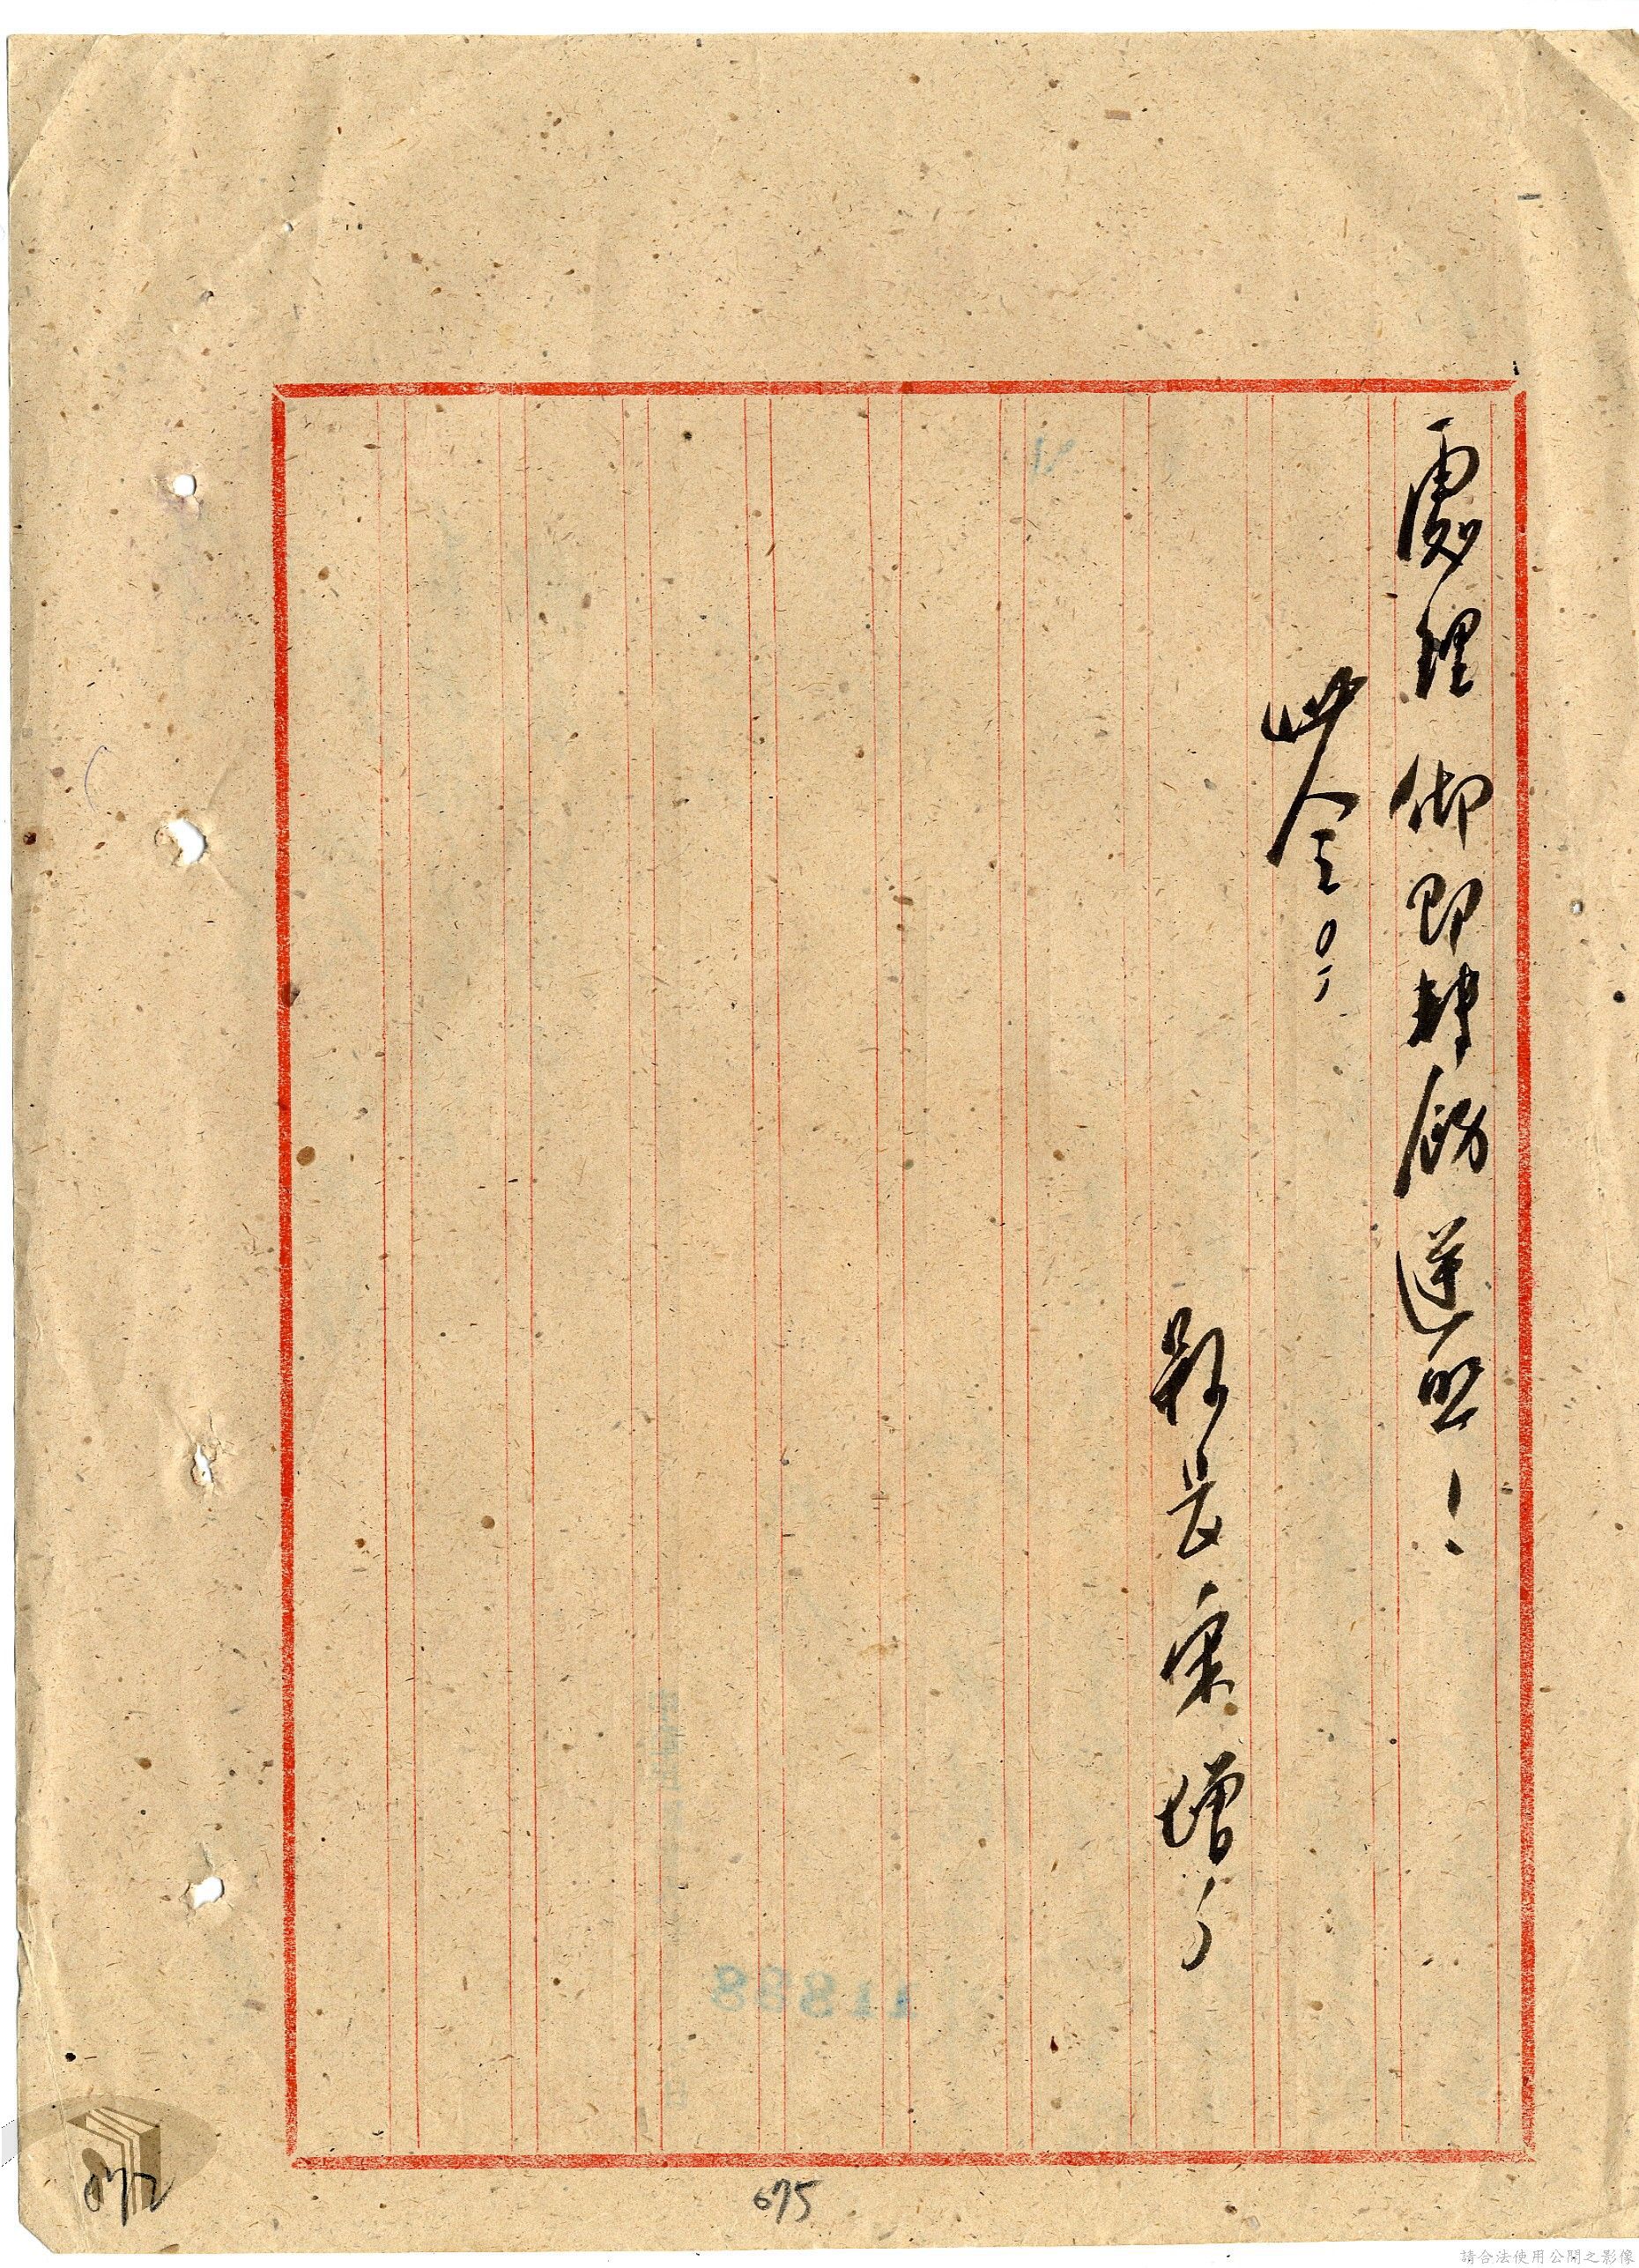 處理仰即轉飭遵照！
此令。
縣長宋增
675
072
11888
請合法使用公開之影像